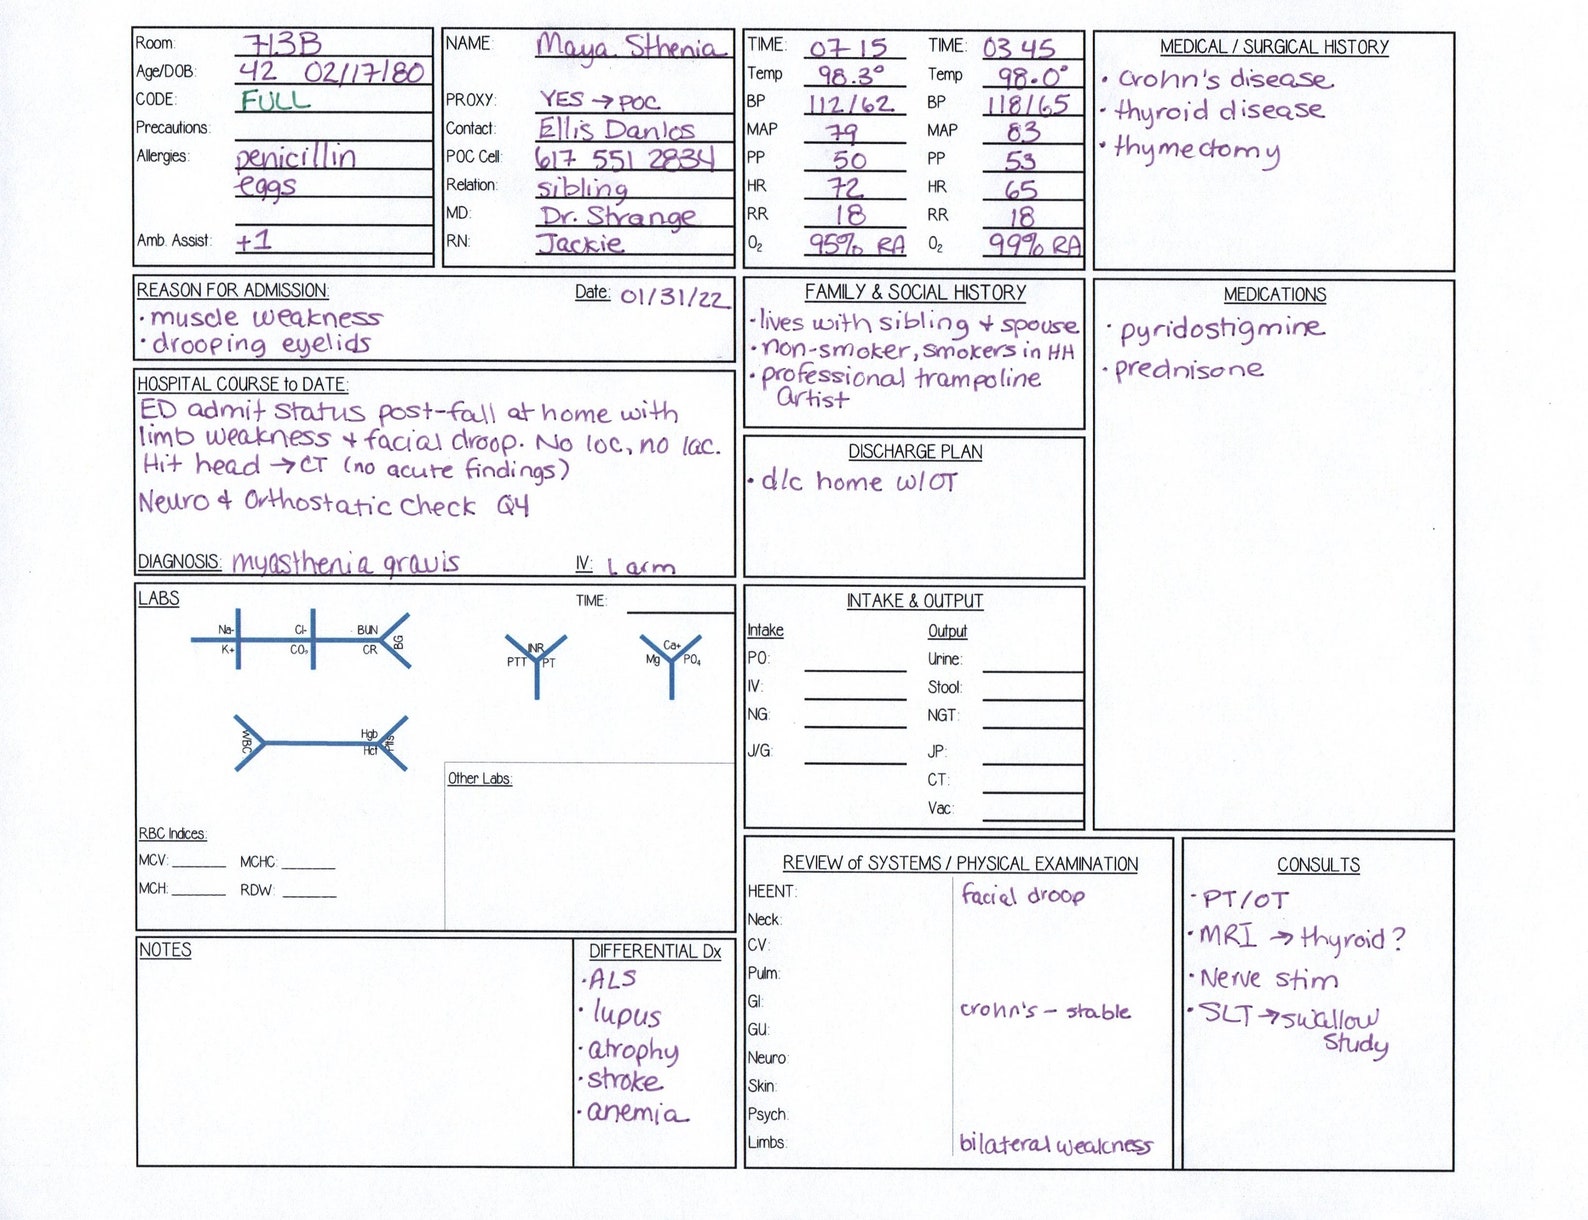 Room: 713B
Age/DOB: 42 02/17/80
CODE: FULL
Precautions:
Allergies: penicillin
eggs
Amb. Assist: +1
NAME: Maya Sthenia
PROXY: YES → POC
Contact: Ellis Danlos
POC Cell: 617 551 2834
Relation: sibling
MD: Dr. Strange
RN: Jackie
TIME: 0715 TIME: 0345
Temp 98.3° Temp 98.0°
BP 112/62 BP 118/65
MAP 79 MAP 83
PP 50 PP 53
HR 72 HR 65
RR 18 RR 18
O₂ 95% RA O₂ 99% RA
MEDICAL / SURGICAL HISTORY
• Crohn's disease
• thyroid disease
• thymectomy
REASON FOR ADMISSION: Date: 01/31/22
• muscle weakness
• drooping eyelids
HOSPITAL COURSE to DATE:
ED admit status post-fall at home with
limb weakness + facial droop. No loc, no lac.
Hit head → CT (no acute findings)
Neuro & Orthostatic check Q4
DIAGNOSIS: myasthenia gravis IV: L arm
FAMILY & SOCIAL HISTORY
• lives with sibling + spouse
• non-smoker, smokers in HH
• professional trampoline
Artist
DISCHARGE PLAN
• d/c home w/OT
MEDICATIONS
• pyridostigmine
• prednisone
LABS TIME:
Na- Cl- BUN BG
K+ CO₂ CR
INR
PTT PT
Ca+
Mg PO₄
WBC Hgb Plts
Hct
Other Labs:
RBC Indices:
MCV: MCHC:
MCH: RDW:
INTAKE & OUTPUT
Intake Output
PO: Urine:
IV: Stool:
NG: NGT:
J/G: JP:
CT:
Vac:
NOTES
DIFFERENTIAL Dx
• ALS
• lupus
• atrophy
• stroke
• anemia
REVIEW of SYSTEMS / PHYSICAL EXAMINATION
HEENT: facial droop
Neck:
CV:
Pulm:
GI: crohn's - stable
GU:
Neuro:
Skin:
Psych:
Limbs: bilateral weakness
CONSULTS
• PT/OT
• MRI → thyroid?
• Nerve stim
• SLT → swallow
study